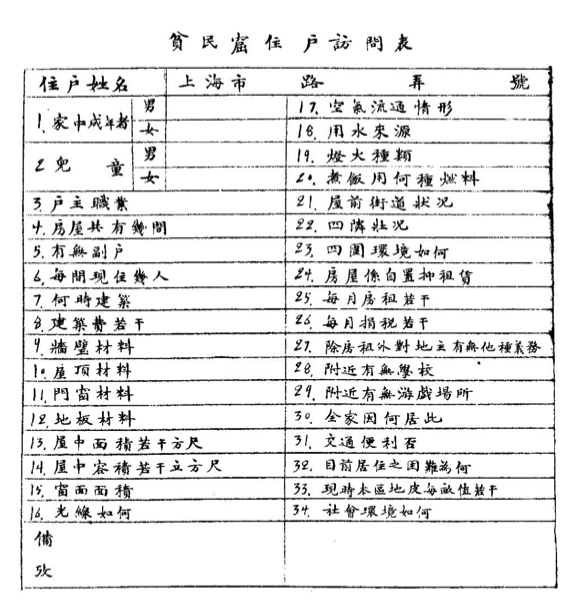 貧民窟住戶訪問表
住戶姓名 上海市 路 弄 號
1. 家中成年者 男
女
2 兒童 男
女
3. 戶主職業
4. 房屋共有幾間
5. 有無副戶
6. 每間現住幾人
7. 何時建築
8. 建築費若干
9. 牆壁材料
10. 屋頂材料
11. 門窗材料
12. 地板材料
13. 屋中面積若干方尺
14. 屋中容積若干立方尺
15. 窗面面積
16. 光線如何
17. 空氣流通情形
18. 用水來源
19. 燈火種類
20. 煮飯用何種燃料
21. 屋前街道狀况
22. 四隣狀况
23. 四圍環境如何
24. 房屋係自置抑租賃
25. 每月房租若干
26. 每月捐税若干
27. 除房租外對地主有無他種義務
28. 附近有無學校
29. 附近有無游戲場所
30. 全家因何居此
31. 交通便利否
32. 目前居住之困難為何
33. 現時本區地皮每畝值若干
34. 社會環境如何
備
攷